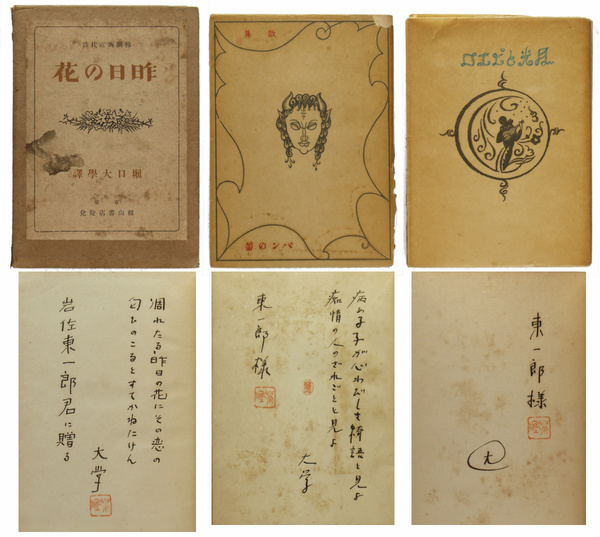 昨日の花
堀口大學譯
東京
籾山書店發兌
歌集
パンの笛
月光とピエロ
凋れたる昨日の花にその恋の
匂ひのこるとすてかねたけん
大学
岩佐東一郎君に贈る
病める子が心わびしき綺語と見よ
痴情の人のざれごとと見よ
大学
東一郎様
東一郎様
大